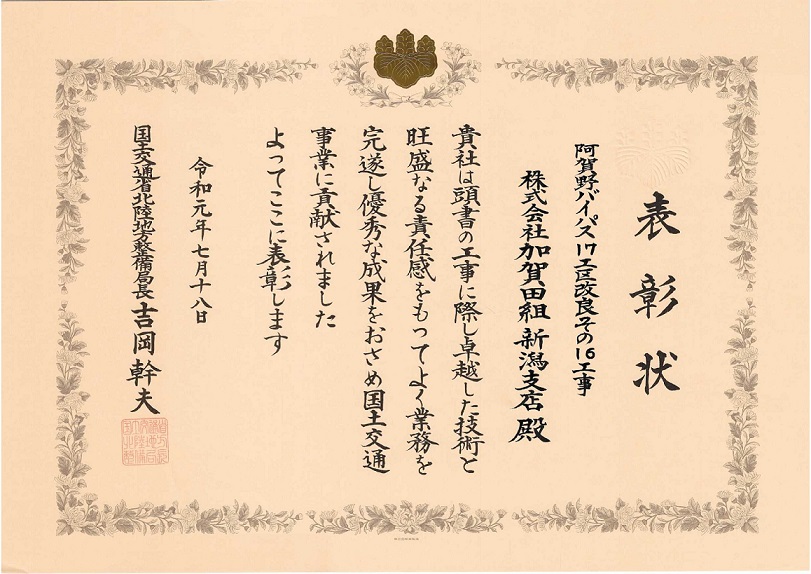 表彰状
阿賀野バイパス17工区改良その16工事
株式会社加賀田組新潟支店殿
貴社は頭書の工事に際し卓越した技術と
旺盛なる責任感をもってよく業務を
完遂し優秀な成果をおさめ国土交通
事業に貢献されました
よってここに表彰します
令和元年七月十八日
国土交通省北陸地方整備局長 吉岡幹夫